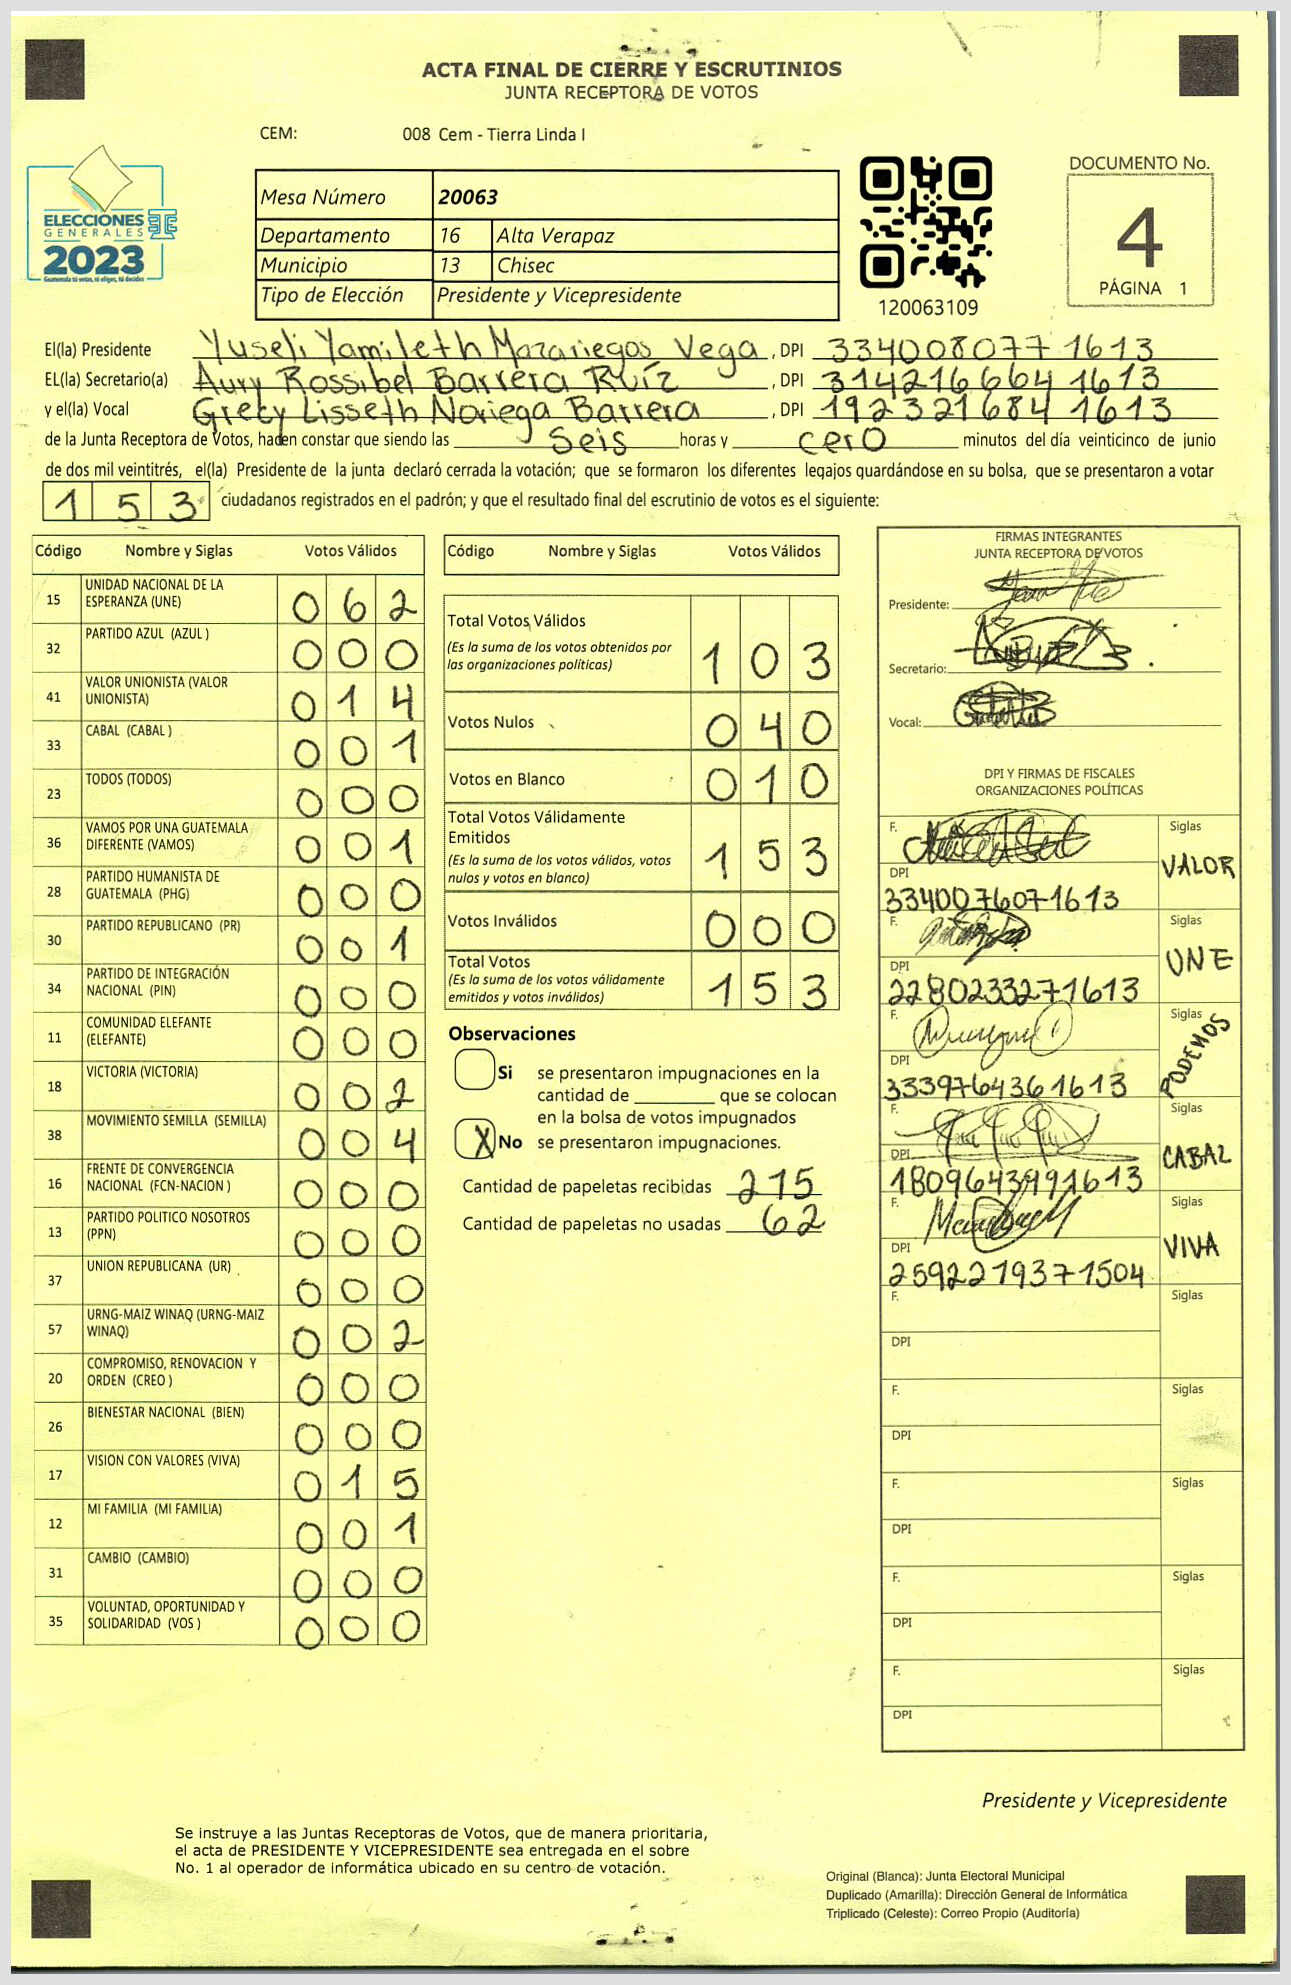 ACTA FINAL DE CIERRE Y ESCRUTINIOS
JUNTA RECEPTORA DE VOTOS
CEM: 008 Cem - Tierra Linda I
ELECCIONES
GENERALES
2023
Guatemala tú votas, tú eliges, tú decides
Mesa Número 20063
Departamento 16 Alta Verapaz
Municipio 13 Chisec
Tipo de Elección Presidente y Vicepresidente
120063109
DOCUMENTO No.
4
PÁGINA 1
El(la) Presidente Yuseli Yamileth Mazariegos Vega, DPI 334008077 1613
EL(la) Secretario(a) Aury Rossibel Barrera Ruíz, DPI 314216664 1613
y el(la) Vocal Grecy Lisseth Noriega Barrera, DPI 192321684 1613
de la Junta Receptora de Votos, hacen constar que siendo las Seis horas y cero minutos del día veinticinco de junio
de dos mil veintitrés, el(la) Presidente de la junta declaró cerrada la votación; que se formaron los diferentes legajos quardándose en su bolsa, que se presentaron a votar
153 ciudadanos registrados en el padrón; y que el resultado final del escrutinio de votos es el siguiente:
Código Nombre y Siglas Votos Válidos
15 UNIDAD NACIONAL DE LA ESPERANZA (UNE) 062
32 PARTIDO AZUL (AZUL ) 000
41 VALOR UNIONISTA (VALOR UNIONISTA) 014
33 CABAL (CABAL ) 001
23 TODOS (TODOS) 000
36 VAMOS POR UNA GUATEMALA DIFERENTE (VAMOS) 001
28 PARTIDO HUMANISTA DE GUATEMALA (PHG) 000
30 PARTIDO REPUBLICANO (PR) 001
34 PARTIDO DE INTEGRACIÓN NACIONAL (PIN) 000
11 COMUNIDAD ELEFANTE (ELEFANTE) 000
18 VICTORIA (VICTORIA) 002
38 MOVIMIENTO SEMILLA (SEMILLA) 004
16 FRENTE DE CONVERGENCIA NACIONAL (FCN-NACION ) 000
13 PARTIDO POLITICO NOSOTROS (PPN) 000
37 UNION REPUBLICANA (UR) 000
57 URNG-MAIZ WINAQ (URNG-MAIZ WINAQ) 002
20 COMPROMISO, RENOVACION Y ORDEN (CREO ) 000
26 BIENESTAR NACIONAL (BIEN) 000
17 VISION CON VALORES (VIVA) 015
12 MI FAMILIA (MI FAMILIA) 001
31 CAMBIO (CAMBIO) 000
35 VOLUNTAD, OPORTUNIDAD Y SOLIDARIDAD (VOS ) 000
Código Nombre y Siglas Votos Válidos
Total Votos Válidos 103
(Es la suma de los votos obtenidos por
las organizaciones políticas)
Votos Nulos 040
Votos en Blanco 010
Total Votos Válidamente
Emitidos 153
(Es la suma de los votos válidos, votos
nulos y votos en blanco)
Votos Inválidos 000
Total Votos 153
(Es la suma de los votos válidamente
emitidos y votos inválidos)
Observaciones
Si se presentaron impugnaciones en la
cantidad de ________ que se colocan
en la bolsa de votos impugnados
X No se presentaron impugnaciones.
Cantidad de papeletas recibidas 215
Cantidad de papeletas no usadas 62
FIRMAS INTEGRANTES
JUNTA RECEPTORA DE VOTOS
Presidente:
Secretario:
Vocal:
DPI Y FIRMAS DE FISCALES
ORGANIZACIONES POLÍTICAS
F. Siglas VALOR
DPI 3340076071613
F. Siglas UNE
DPI 2280233271613
F. Siglas PODEMOS
DPI 3339764361613
F. Siglas CABAL
DPI 1809643991613
F. Siglas VIVA
DPI 2592219371504
F. Siglas
DPI
F. Siglas
DPI
F. Siglas
DPI
F. Siglas
DPI
F. Siglas
DPI
Presidente y Vicepresidente
Se instruye a las Juntas Receptoras de Votos, que de manera prioritaria,
el acta de PRESIDENTE Y VICEPRESIDENTE sea entregada en el sobre
No. 1 al operador de informática ubicado en su centro de votación.
Original (Blanca): Junta Electoral Municipal
Duplicado (Amarilla): Dirección General de Informática
Triplicado (Celeste): Correo Propio (Auditoría)